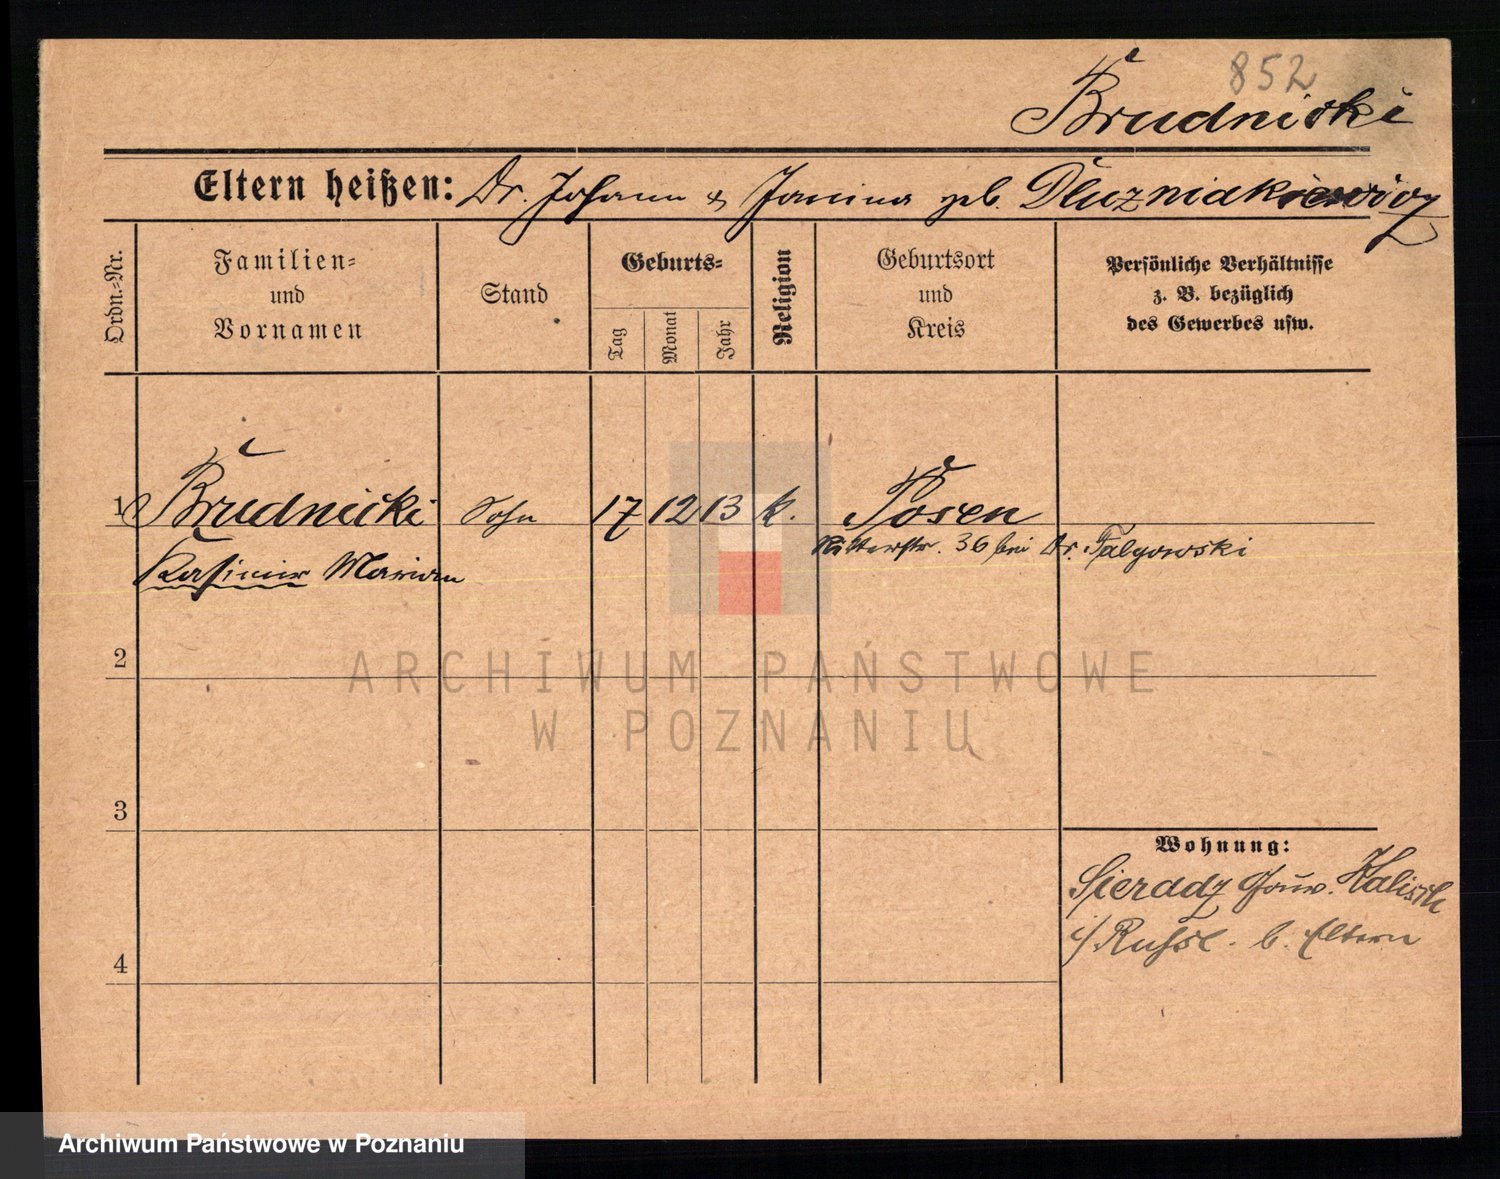 852
Brudnicki
Eltern heißen: Dr. Johann & Janina geb. Dluzniakiewicz
Ordn.-Nr.
Familien-
und
Vornamen
Stand
Geburts-
Tag
Monat
Jahr
Religion
Geburtsort
und
Kreis
Persönliche Verhältnisse
z. B. bezüglich
des Gewerbes usw.
1 Brudnicki Sohn 17 12 13 k. Posen
Ritterstr. 36 bei Dr. Falgowski
Kasimir Marian
2
ARCHIWUM PAŃSTWOWE
W POZNANIU
3
Wohnung:
Sieradz Gouv. Kalisch
i/Russl. b. Eltern
4
Archiwum Państwowe w Poznaniu